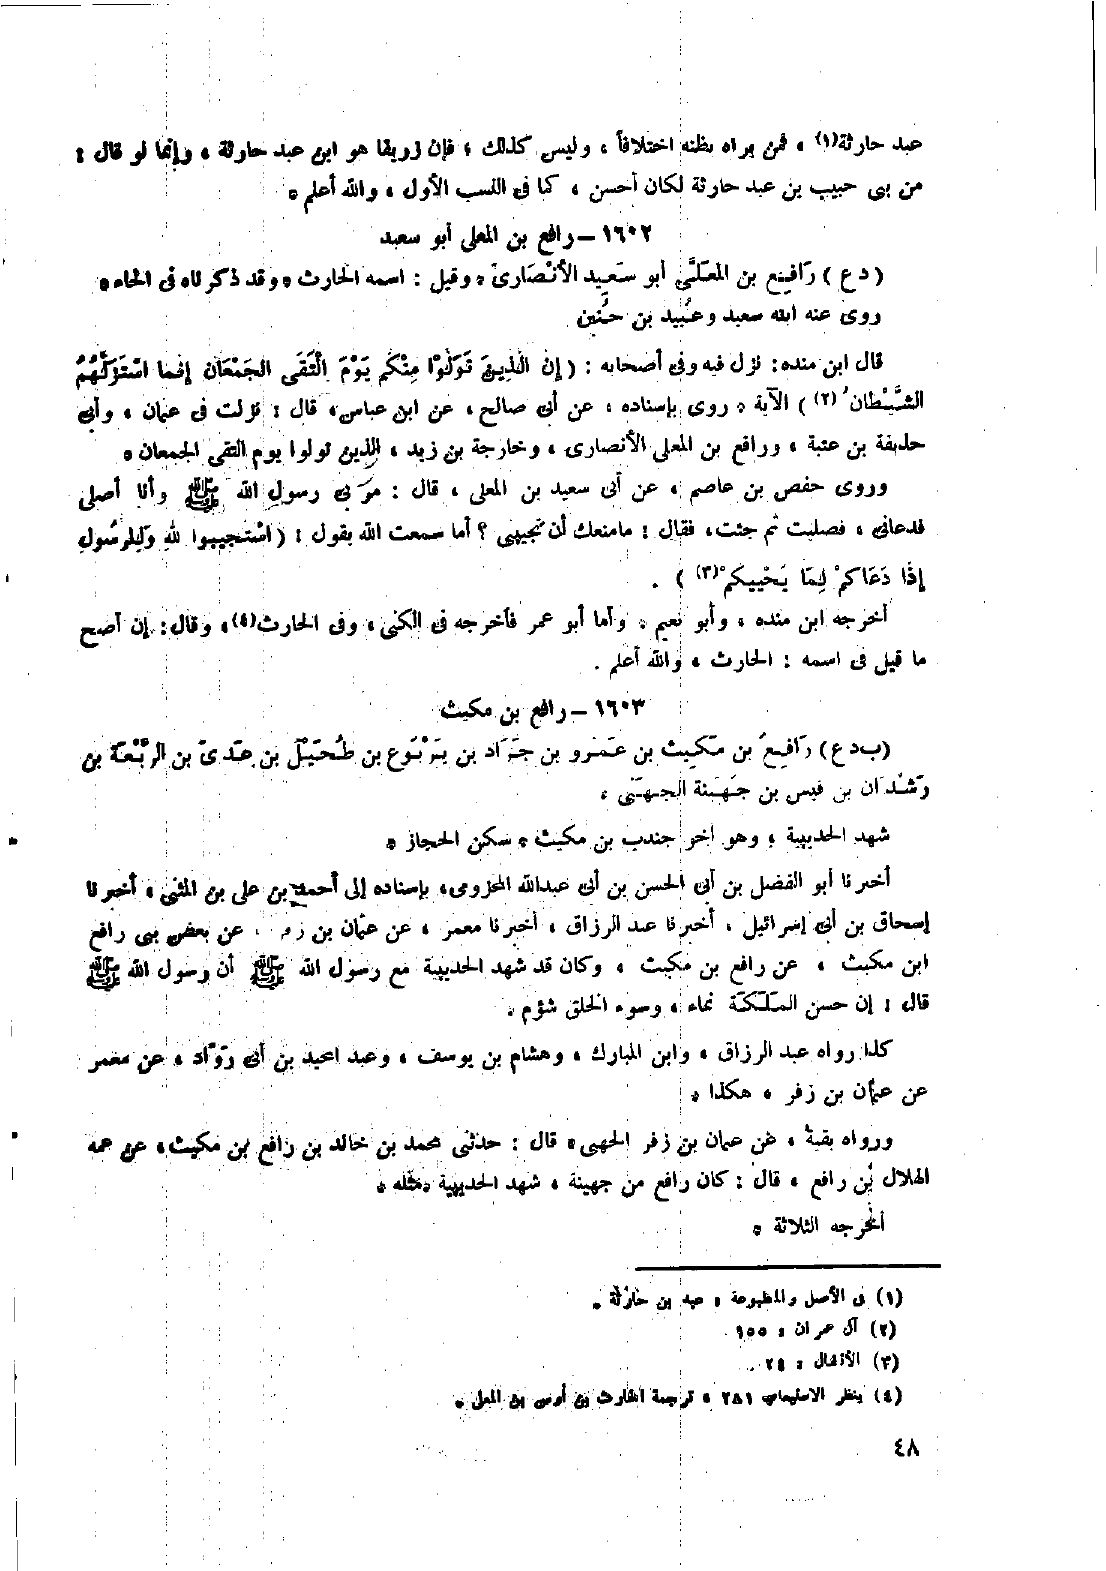 عبد حارثة(١) ، فمن يراه يظنه اختلافاً ، وليس كذلك ، فإن زريقا هو ابن عبد حارثة ، وإنما لو قال :
من بنى حبيب بن عبد حارثة لكان أحسن ، كما فى النسب الأول ، والله أعلم .
١٦٠٢ – رافع بن المعلى أبو سعيد
( د ع ) رَافِع بن المعَلَّى أبو سَعِيد الأَنْصَارىّ . وقيل : اسمه الحارث . وقد ذكرناه فى الحاء .
روى عنه ابنه سعيد وعُبَيد بن حُنَين
قال ابن منده : نزل فيه وفى أصحابه : ( إِنَّ الَّذِينَ تَوَلَّوْا مِنْكُم يَوْمَ الْتَقَى الجَمْعَان إِنَّما اسْتَزَلَّهُمُ
الشَّيْطَانُ (٢) ) الآية . روى بإسناده ، عن أبى صالح ، عن ابن عباس ، قال : نزلت فى عثمان ، وأبى
حذيفة بن عتبة ، ورافع بن المعلى الأنصارى ، وخارجة بن زيد ، الذين تولوا يوم التقى الجمعان .
وروى حفص بن عاصم ، عن أبى سعيد بن المعلى ، قال : مرّ بى رسول الله ﷺ وأنا أصلى
فدعانى ، فصليت ثم جئت ، فقال : مامنعك أن تجيبنى ؟ أما سمعت الله يقول : ( اسْتَجِيبوا لله وَلِلرسُولِ
إِذَا دَعَاكمْ لِمَا يُحْيِيكمْ (٣) ) .
أخرجه ابن منده ، وأبو نعيم . وأما أبو عمر فأخرجه فى الكنى ، وفى الحارث(٤) ، وقال : إن أصح
ما قيل فى اسمه : الحارث ، والله أعلم .
١٦٠٣ – رافع بن مكيث
(ب د ع) رَافِعُ بن مَكِيث بن عَمْرو بن جَرَاد بن يَرْبُوع بن طُحَيْل بن عَدىّ بن الرَّبْعَة بن
رَشْدَان بن قيس بن جُهَيْنَة الجُهَنى ،
شهد الحديبية ، وهو أخو جندب بن مكيث . سكن الحجاز .
أخبرنا أبو الفضل بن أبى الحسن بن أبى عبدالله المخزومى ، بإسناده إلى أحمد بن على بن المثنى ، أخبرنا
إسحاق بن أبى إسرائيل ، أخبرنا عبد الرزاق ، أخبرنا معمر ، عن عثمان بن زفر ، عن بعض بنى رافع
ابن مكيث ، عن رافع بن مكيث ، وكان قد شهد الحديبية مع رسول الله ﷺ أن رسول الله ﷺ
قال : إن حسن المَلَكَة نماء ، وسوء الخلق شؤم .
كذا رواه عبد الرزاق ، وابن المبارك ، وهشام بن يوسف ، وعبد المجيد بن أبى روّاد ، عن معمر
عن عثمان بن زفر ، هكذا .
ورواه بقية ، عن عثمان بن زفر الجهنى ، قال : حدثنى محمد بن خالد بن رافع بن مكيث ، عن عمه
الهلال بن رافع ، قال : كان رافع من جهينة ، شهد الحديبية .مثله .
أخرجه الثلاثة .
(١) فى الأصل والمطبوعة ، عبد بن حارثة .
(٢) آل عمران : ١٥٥
(٣) الأنفال : ٢٤ .
(٤) ينظر الاستيعاب ٢٨١ ، ترجمة الحارث بن أوس بن المعلى .
٤٨